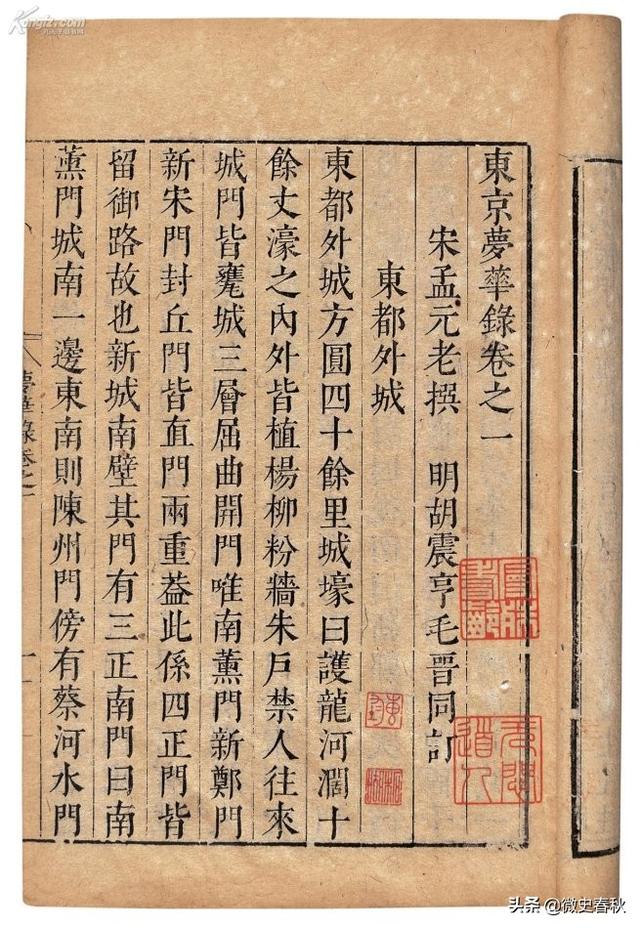 東京夢華錄卷之一
宋孟元老撰 明胡震亨毛晉同訂
東都外城
東都外城方圓四十餘里城壕曰護龍河濶十
餘丈濠之內外皆植楊柳粉牆朱戶禁人往來
城門皆甕城三層屈曲開門唯南薰門新鄭門
新宋門封丘門皆直門兩重葢此係四正門皆
留御路故也新城南壁其門有三正南門曰南
薰門城南一邊東南則陳州門傍有蔡河水門
夢華錄卷之一
一
Kongfz.com
孔夫子旧书网
头条 @微史春秋